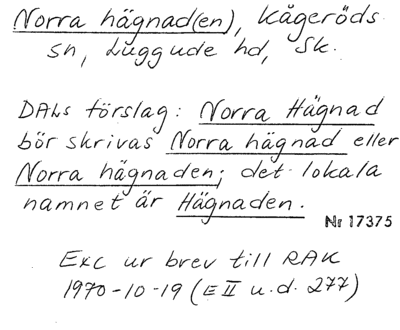 Norra hägnad(en), Kågeröds
sn, Luggude hd, Sk.
DALs förslag: Norra Hägnad
bör skrivas Norra hägnad eller
Norra hägnaden; det lokala
namnet är Hägnaden.
Nr 17375
Exc ur brev till RAK
1970-10-19 (E II u.d. 277)